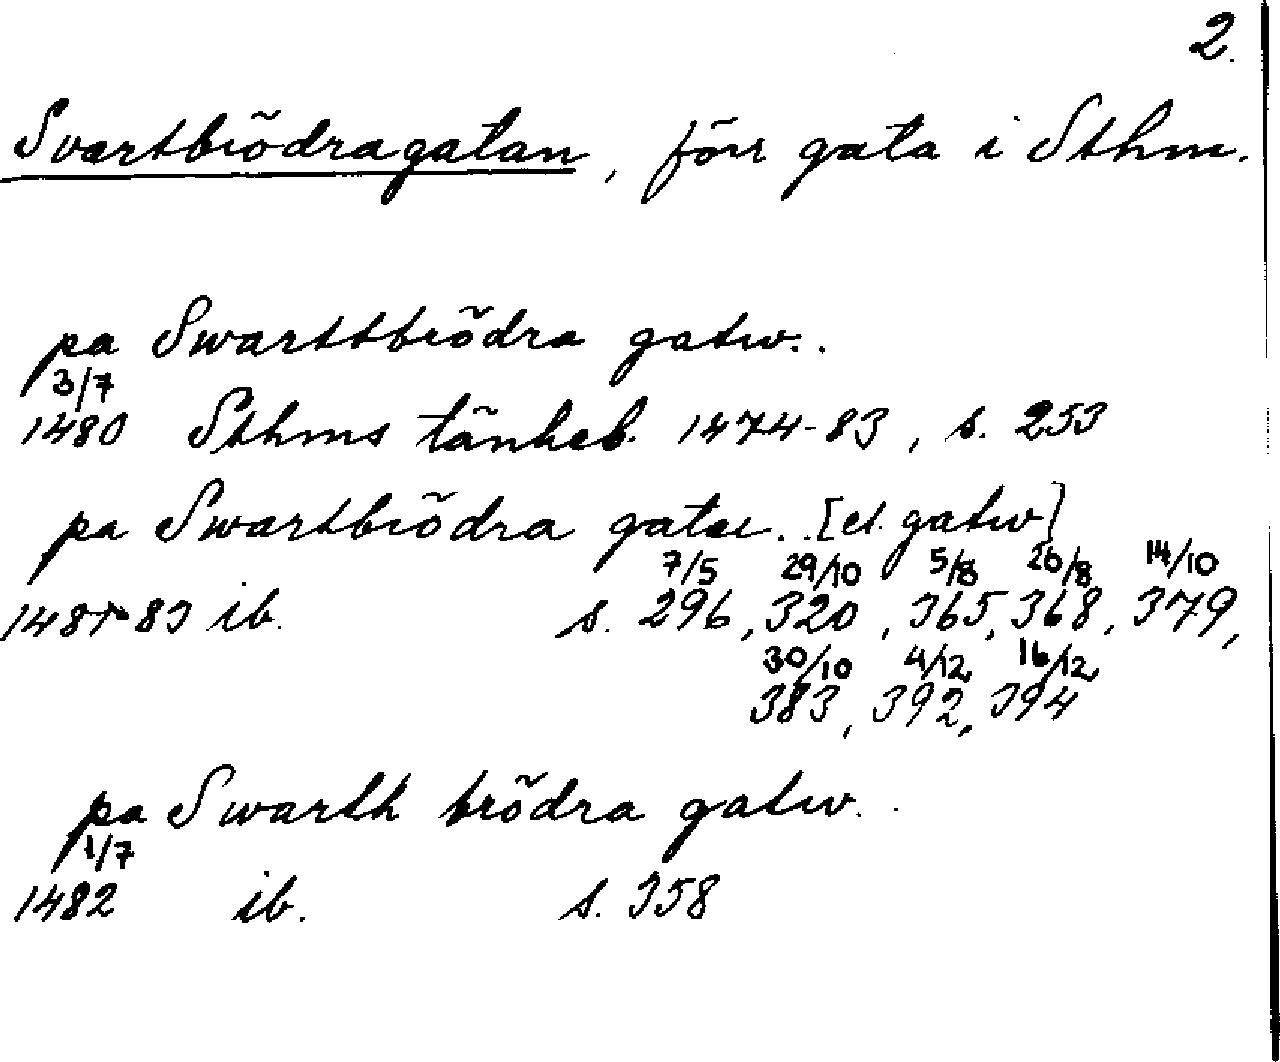 2.
Svartbrödragatan, förr gata i Sthm.
pa Swarttbrödra gatw..
3/7
1480 Sthms tänkeb. 1474-83, s. 253
pa Swartbrödra gatu.. [el. gatw]
7/5 29/10 5/8 26/8 14/10
1481-83 ib. s. 296, 320, 365, 368, 379,
30/10 4/12 16/12
383, 392, 394
pa Swarth brödra gatw..
1/7
1482 ib. s. 358